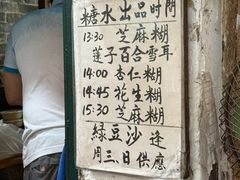 糖水出品时间
13:30 芝麻糊
蓮子百合雪耳
14:00 杏仁糊
14:45 花生糊
15:30 芝麻糊
緑豆沙 逢
周三.日供應